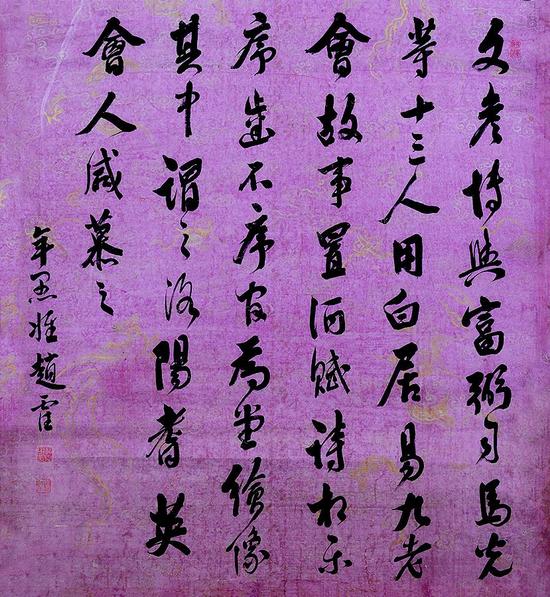 文彥博與富弼司馬光
等十三人用白居易九老
會故事置酒賦詩相樂
序齒不序官為堂繪像
其中謂之洛陽耆英
會人咸慕之
年愚姪趙